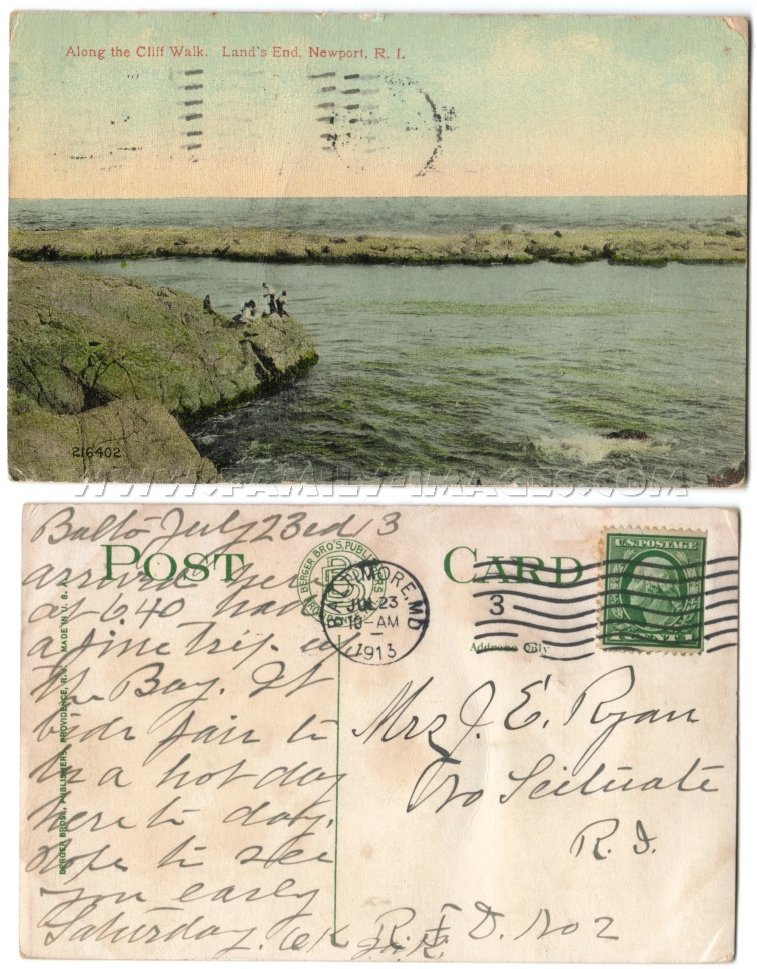 Along the Cliff Walk. Land's End, Newport, R. I.
216402
WWW.FAMILY-IMAGES.COM
Balto July 23rd 13
POST CARD
arrived here
at 6.40 had
a fine trip up
the Bay. It
bids fair to
be a hot day
here to day.
Hope to see
you early
Saturday.
BERGER BRO'S. PUBLISHERS, PROVIDENCE, R.I. MADE IN U.S.A.
BERGER BRO'S. PUBLISHERS
BB
BALTIMORE, MD
JUL 23
10-AM
1913
3
Address Only
U.S. POSTAGE
Mrs J. E. Ryan
No Scituate
R. I.
R. F. D. No 2